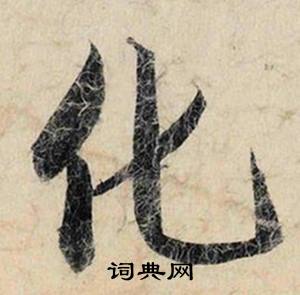 化
词典网